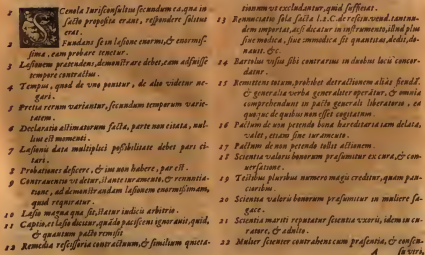 1 SCeuola Iurisconsultus secundum ea, quæ in
facto proposita erant, respondere solitus
erat.
2 Fundans se in lesione enormi, & enormis-
sima, eam probare tenetur.
3 Lesionem prætendens, demonstrare debet, eam adfuisse
tempore contractus.
4 Tempus, quod de vno ponitur, de alio videtur ne-
gari.
5 Pretia rerum variantur, secundum temporum varie-
tatem.
6 Declaratio æstimatorum facta, parte non citata, nul-
lius est momenti.
7 Lesioni data multiplici possibilitate debet pars ci-
tari.
8 Probationes deficere, & ius non habere, par est.
9 Contrauentio videtur, stante iuramento, & renuntia-
tione, ad demonstrandam lesionem enormissimam,
quid requiratur.
10 Lesio magna quæ sit, statur iudicis arbitrio.
11 Captio, et lesio dicitur, quando paciscens ignorauit, quid,
& quantum pacto remisit
12 Remedia rescissoria contractuum, & similium quieta-
tionum vt excludantur, quid sufficiat.
13 Renunciatio sola facta l. 2. C. de rescin. vend. tantun-
dem importat, ac si dicatur in instrumento, illud plus
siue modica, siue immodica sit quantitas, dedit, do-
nauit, &c.
14 Bartolus visus sibi contrarius in duobus locis concor-
datur.
15 Remittens totum, prohibet detractionem alias fiendā.
& generalia verba generaliter operātur, & omnia
comprehendunt in pacto generali liberatorio, ea
quoque de quibus non esset cogitatum.
16 Pactum de non petendo bona hæreditaria iam delata,
valet, etiam sine iuramento.
17 Pactum de non petendo tollit actionem.
18 Scientia valoris bonorum præsumitur ex cura, & con-
uersatione.
19 Testibus pluribus numero magis creditur, quam pau-
cioribus.
20 Scientia valoris bonorum præsumitur in muliere sa-
gace.
21 Scientia mariti reputatur scientia vxoris, idem in cu-
ratore, & adulto.
22 Mulier scienter contrahens cum præsentia, & consen-
A su viri,